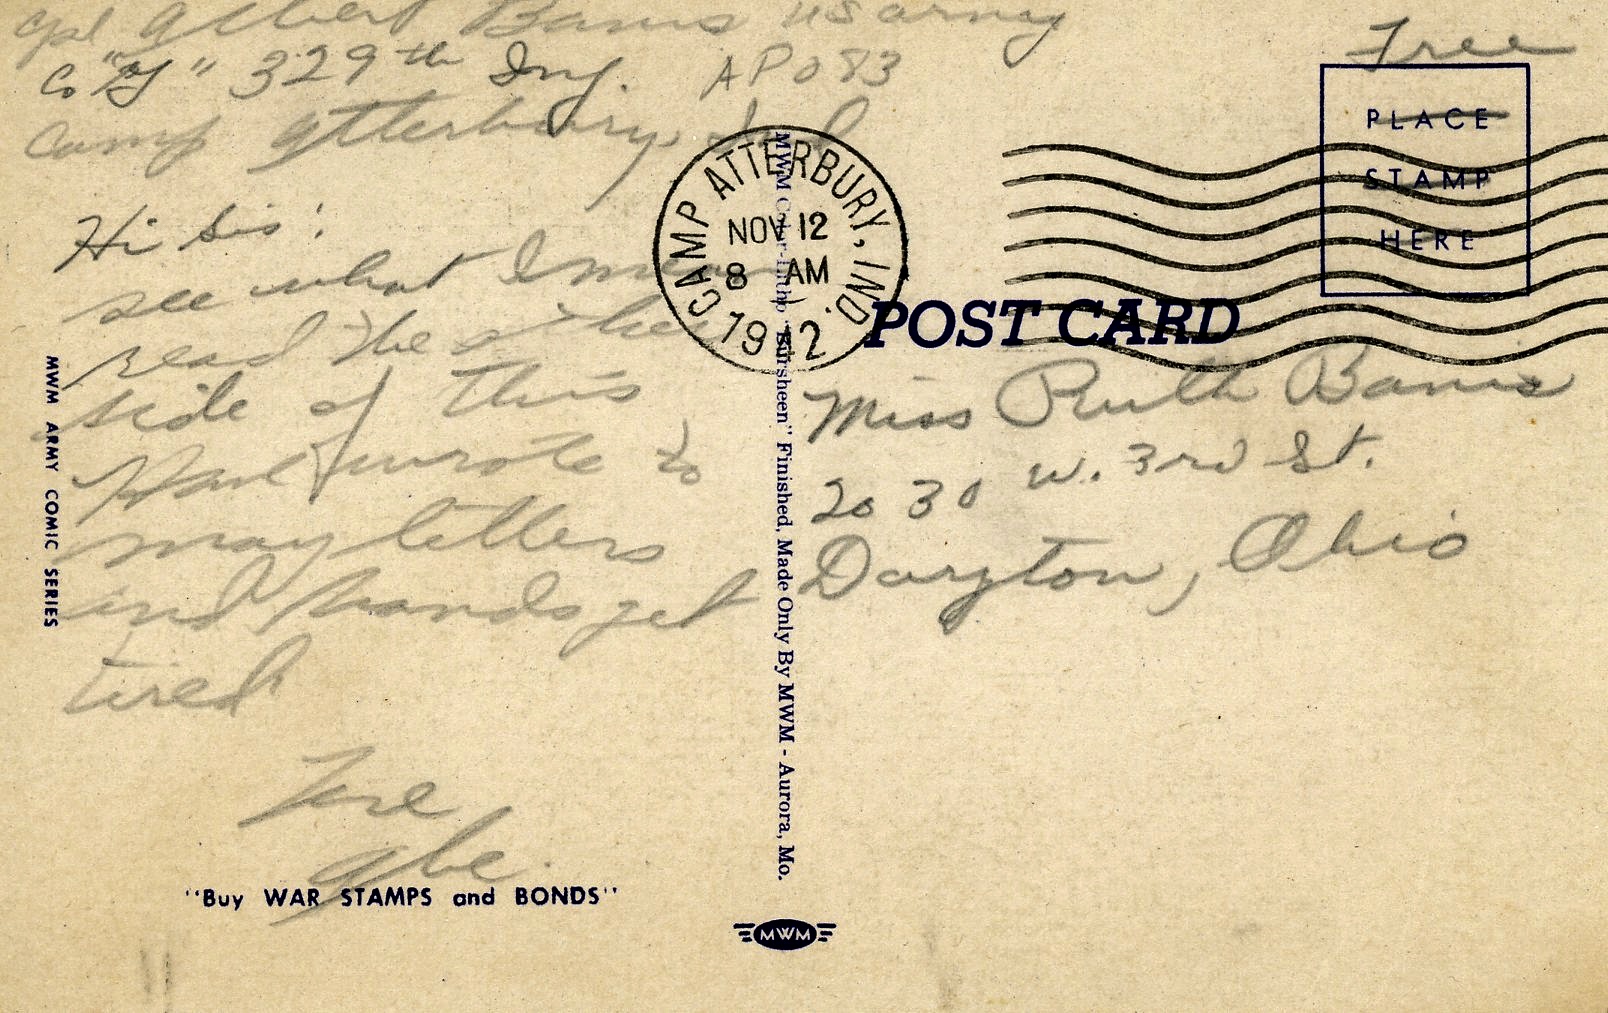 Cpl Albert Banis US Army
Co "G" 329th Inf. APO 83
Camp Atterbury, Ind
Free
PLACE
STAMP
HERE
CAMP ATTERBURY, IND.
NOV 12
8 AM
1942
POST CARD
Hi Sis!
see what I mean
read the other
side of this
Have wrote to
many letters
and hands get
tired
Love
Abe.
Miss Ruth Banis
2030 W. 3rd St.
Dayton, Ohio
MWM ARMY COMIC SERIES
MWM Color-Litho "Bursheen" Finished, Made Only By MWM - Aurora, Mo.
"Buy WAR STAMPS and BONDS"
MWM